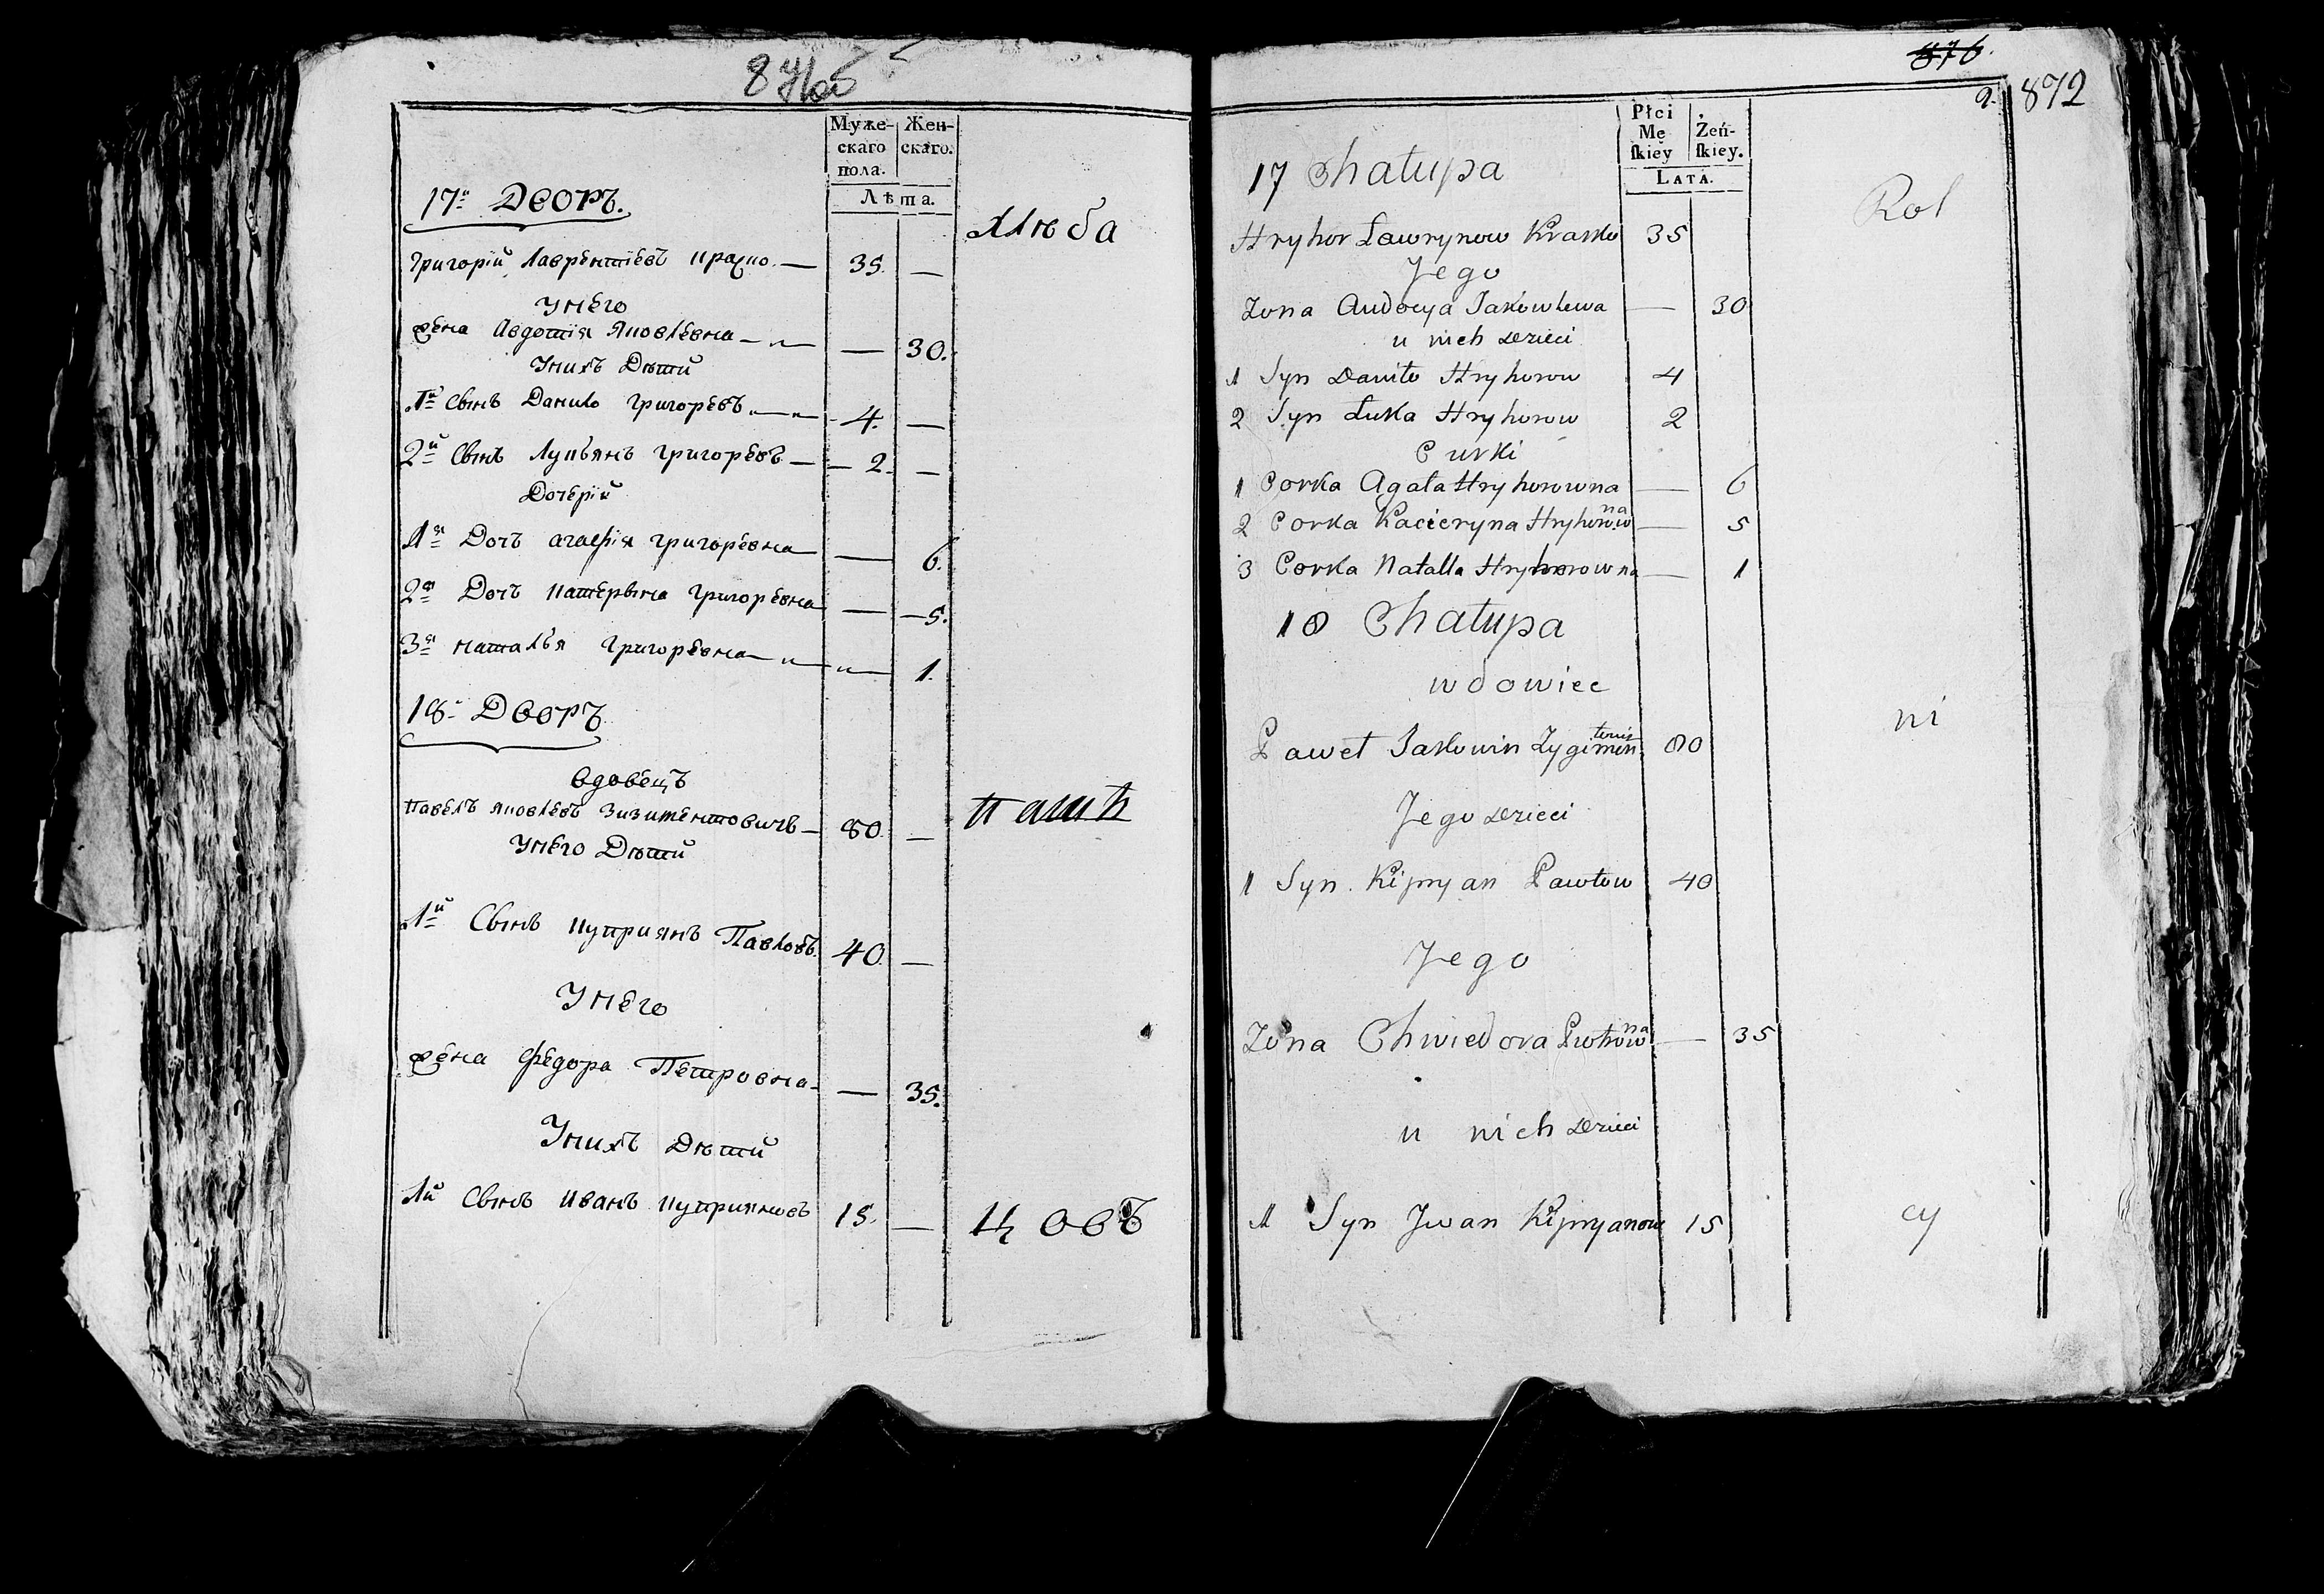 Муже-
скаго
пола.
Жен-
скаго.
Лѣта.
17й Дворъ.
Хлѣба
Григорій Лаврентіевъ Крацко — 35. —
Унего
Жена Авдотія Яковлевна — 30.
Унихъ Дѣтй
1й Сынъ Данило Григоревъ 4. —
2й Сынъ Лукъянъ Григоревъ — 2. —
Дочерій
1я Дочъ агафія Григоревна — 6.
2я Дочъ Катерына Григоревна — 5.
3я Наталья Григоревна — 1.
18й Дворъ
Вдовецъ
Павелъ Яковлевъ Зизитентовичъ — 80. —
Пашъ
Унего Дѣтй
1й Сынъ Куприянъ Павловъ 40. —
Унего
Жена Федора Петровна — 35.
Унихъ Дѣтй
1й Сынъ Иванъ Куприяновъ 15. —
цовъ
876.
2. 872
Płci
Mę
ſkiey
Żeń-
ſkiey.
LATA.
17 Chałupa
Rol
Hryhor Ławrynow Krasko 35
Jego
Zona Audocya Jakowlewa — 30
u nich dzieci
1 Syn Daniło Hryhorow 4
2 Syn Łuka Hryhorow 2
Curki
1 Corka Agata Hryhorowna — 6
2 Corka Kacieryna Hryhorowna — 5
3 Corka Natalla Hryhorowna — 1
18 Chałupa
wdowiec
ni
Paweł Jakowin Zygimontowicz 80
Jego dzieci
1 Syn Kipryan Pawłow 40
Jego
Zona Chwiedora Piotrowna — 35
u nich dzieci
1 Syn Jwan Kipryanow 15
cy